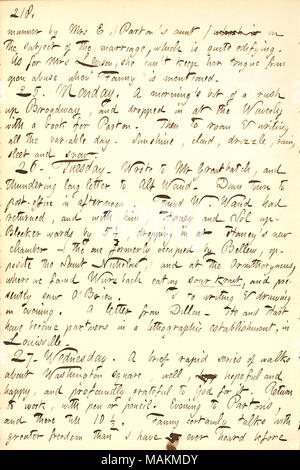 218.
manner by Mrs E. (Parton's aunt) is on
the subject of the marriage, which is quite edifying.
As for Mrs Leeson, she can't keep her tongue from
open abuse when "Fanny" is mentioned.
25. Monday. A morning's bit of a rush
up Broadway and dropped in at the Waverly
with a book for Parton. Then to room & writing
all the variable day. Sunshine, cloud, drizzle, rain,
sleet and snow.
26. Tuesday. Wrote to Mr Greatbatch, and
thundering long letter to Alf Waud. Down town to
post-office in afternoon. Found W. Waud had
returned, and with him, Haney and Sol up-
Bleecker wards by dropping in at Haney's new
chamber — the one formerly occupied by Bellew, op-
posite the Saint Nicholas; and at the Ornithorhyncus,
where we found Wurzback eating sour krout, and pre-
sently saw O'Brien. to writing & drawing
in evening. A letter from Dillon. He and Hart
have become partners in a lithographic establishment, in
Louisville.
27. Wednesday. A brief rapid series of walks
about Washington square, well, hopeful and
happy, and profoundly grateful to God for it. Return
to work, with pen or pencil. Evening to Partons,
and there till 10 ½. Fanny certainly talks with
greater freedom than I have ever heard before
alamy
Image ID: MAKMDY
www.alamy.com